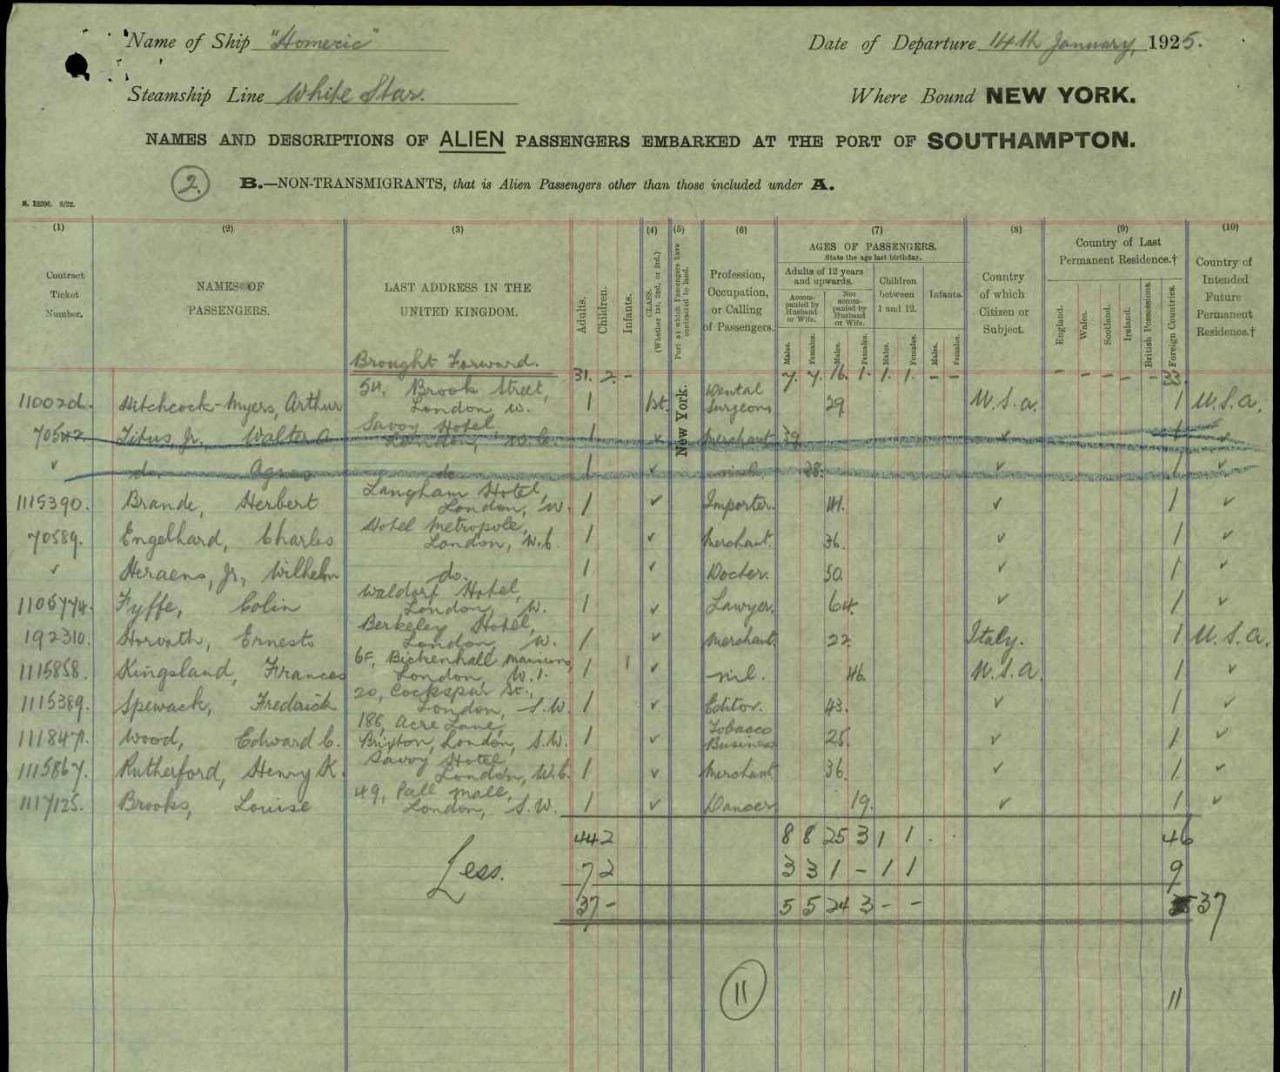 Name of Ship "Homeric" Date of Departure 14th January, 1925.
Steamship Line White Star. Where Bound NEW YORK.
NAMES AND DESCRIPTIONS OF ALIEN PASSENGERS EMBARKED AT THE PORT OF SOUTHAMPTON.
2. B.—NON-TRANSMIGRANTS, that is Alien Passengers other than those included under A.
(1) (2) (3) (4) (5) (6) (7) (8) (9) (10)
Contract Ticket Number.
NAMES OF PASSENGERS.
LAST ADDRESS IN THE UNITED KINGDOM.
Adults. Children. Infants.
CLASS. (Whether 1st, 2nd, or 3rd.)
Port at which Passengers have contracted to land.
Profession, Occupation, or Calling of Passengers.
AGES OF PASSENGERS.
State the age last birthday.
Adults of 12 years and upwards.
Children between 1 and 12.
Infants.
Accompanied by Husband or Wife.
Not accompanied by Husband or Wife.
Males. Females. Males. Females. Males. Females. Males. Females.
Country of which Citizen or Subject.
Country of Last Permanent Residence.†
England. Wales. Scotland. Ireland. British Possessions. Foreign Countries.
Country of Intended Future Permanent Residence.†
Brought Forward. 31. 2. - 7. 7. 16. 1. 1. 1. - - - - - - - 33.
New York.
Hitchcock-Myers, Arthur 54, Brook Street, London, W. 1 1st. Dental Surgeon 29 U.S.A. 1 U.S.A.
Titus, Jr., Walter A. Savoy Hotel, London, W.C. 1 ✓ Merchant 39 ✓ 1 ✓
✓ do. Agnes do 1 ✓ nil. 38. ✓ 1 ✓
1115390. Brande, Herbert Langham Hotel, London, W. 1 ✓ Importer. 41. ✓ 1 ✓
70589. Engelhard, Charles Hotel Metropole, London, W.C. 1 ✓ Merchant. 36. ✓ 1 ✓
✓ Heraeus, Jr, Wilhelm do. 1 ✓ Doctor. ✓ 1 ✓
1105774. Fyffe, Colin Waldorf Hotel, London, W. 1 ✓ Lawyer. 64. ✓ 1 ✓
192310. Horvath, Ernesto Berkeley Hotel, London, W. 1 ✓ Merchant. 22 Italy. 1 U.S.A.
1115858. Kingsland, Frances 6F, Bickenhall Mansions, London, W.1. 1 ✓ nil. 46. U.S.A. 1 ✓
1115389. Spewack, Fredrick 20, Cockspur St., London, S.W. 1 ✓ Editor. 43. ✓ 1 ✓
111847. Wood, Edward C. 188, Acre Lane, Brixton, London, S.W. 1 ✓ Tobacco Business 25. ✓ 1 ✓
1115867. Rutherford, Henry K. Savoy Hotel, London, W.C. 1 ✓ Merchant 36. ✓ 1 ✓
1117125. Brooks, Louise 49, Pall Mall, London, S.W. 1 ✓ Dancer 19. ✓ 1 ✓
44 2 8 8 25 3 1 1 . . 46
Less. 7 2 3 3 1 - 1 1 9
37 - 5 5 24 3 - - 37
11 11